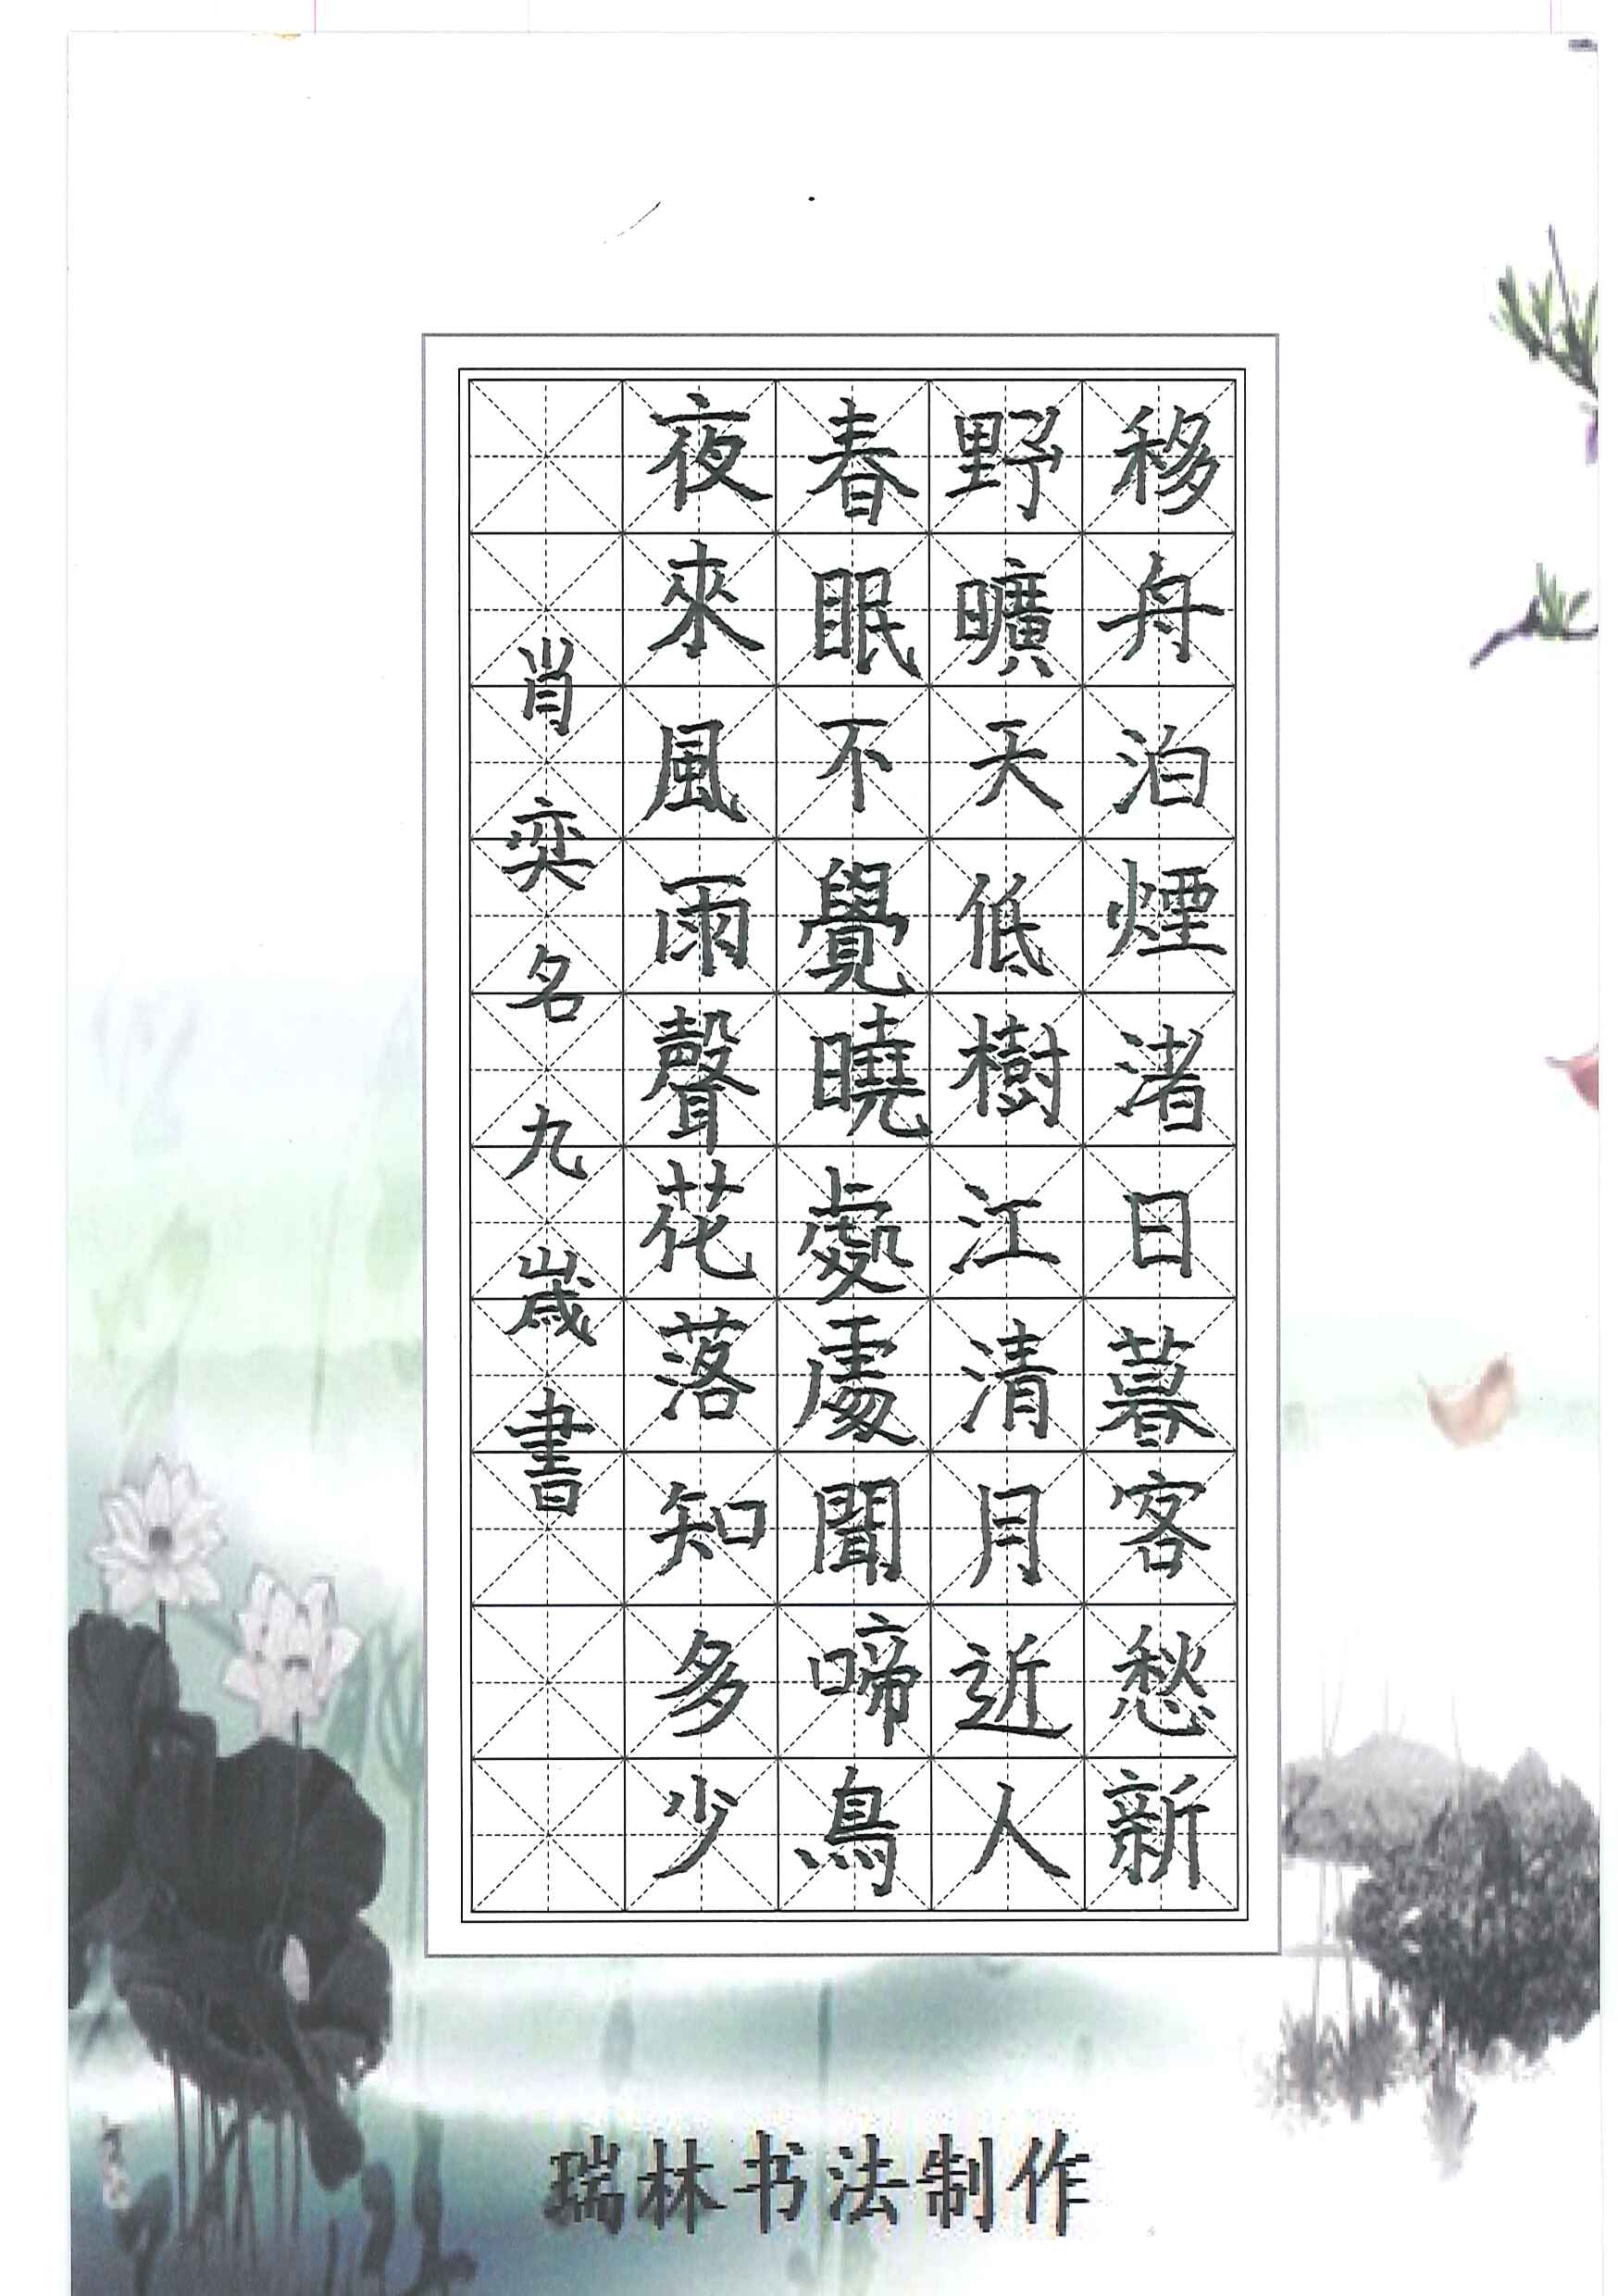 移舟泊煙渚日暮客愁新
野曠天低樹江清月近人
春眠不覺曉處處聞啼鳥
夜來風雨聲花落知多少
肖奕名九歲書
瑞林书法制作